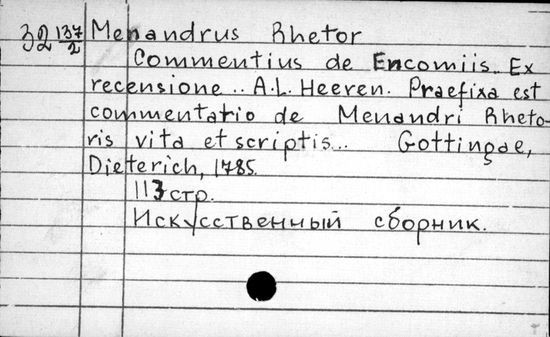 32 137/2 Menandrus Rhetor
Commentius de Encomiis.. Ex
recensione .. A.L. Heeren. Praefixa est
commentatio de Menandri Rheto-
ris vita et scriptis... Gottingae,
Dieterich, 1785.
113 стр.
Искусственный сборник.